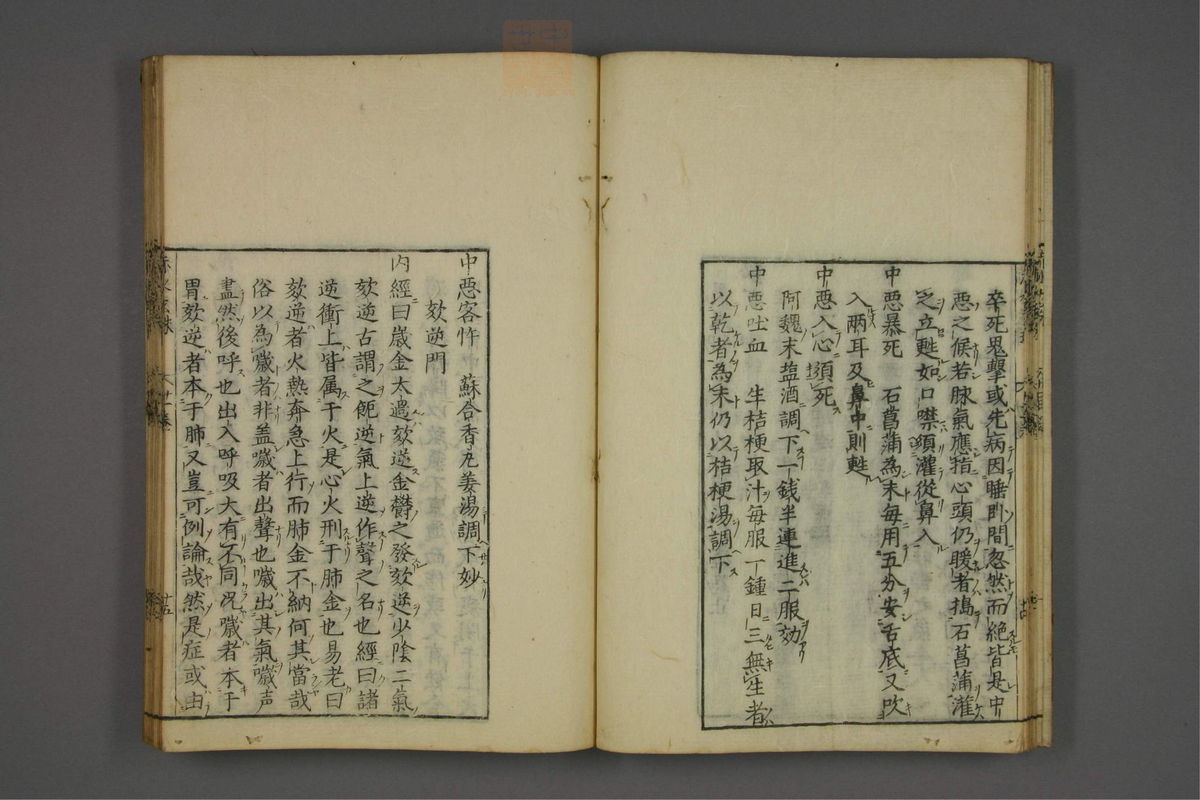 卒死鬼擊或先病因睡卧間忽然而絶皆是中
惡之候若脉氣應指心頭仍暖者搗石菖蒲灌
之立甦如口噤須灌從鼻入
中惡暴死　石菖蒲為末每用五分安舌底又吹
入兩耳及鼻中則甦
中惡入心頭死
阿魏末盐酒調下一錢半連進二服効
中惡吐血　生桔梗取汁每服一鍾日三無生者
以乾者為末仍以桔梗湯調下
中惡客忤　蘇合香丸姜湯調下妙
欬逆門
内經曰歳金太過欬逆金欝之發欬逆少陰二氣
欬逆古謂之呃逆氣上逆作聲之名也經曰諸
逆衝上皆属于火是心火刑于肺金也易老曰
欬逆者火熱奔急上行而肺金不納何其當哉
俗以為噦者非盖噦者出聲也噦出其氣噦声
盡然後呼也出入呼吸大有不同况噦者本于
胃欬逆者本于肺又豈可例論哉然是症或由